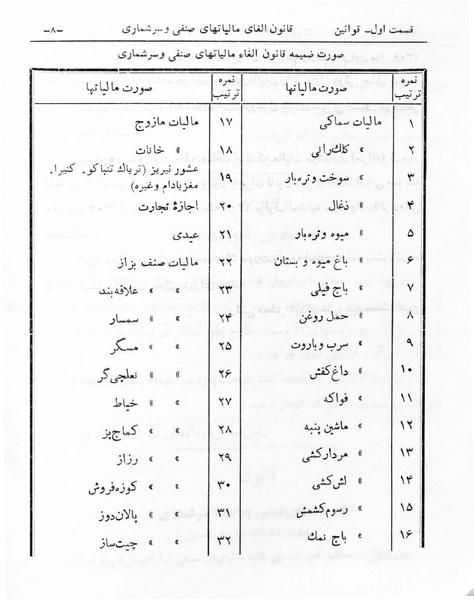 قسمت اول - قوانین قانون الغای مالیاتهای صنفی و سرشماری -۸-
صورت ضمیمه قانون الغاء مالیاتهای صنفی و سرشماری
نمره ترتیب صورت مالیاتها نمره ترتیب صورت مالیاتها
مالیات سماکی ۱۷ مالیات مازوج
۲ » کلك رانی ۱۸ » خانات
۳ » سوخت و تره بار ۱۹ عشور نیریز (تریاك تنباکو. کتیرا. مغز بادام وغیره)
۴ » ذغال ۲۰ » اجازۀ تجارت
۵ » میوه و تره بار ۲۱ عیدی
۶ » باغ میوه و بستان ۲۲ مالیات صنف بزاز
۷ » باج فیلی ۲۳ » » علاقه بند
۸ » حمل روغن ۲۴ » » سمسار
۹ » سرب و باروت ۲۵ » » مسگر
۱۰ » داغ کفش ۲۶ » » نعلچی گر
۱۱ » فواکه ۲۷ » » خیاط
۱۲ » ماشین پنبه ۲۸ » » کماج پز
۱۳ » مردار کشی ۲۹ » » رزاز
۱۴ » لش کشی ۳۰ » » کوزه فروش
۱۵ » رسوم کشمش ۳۱ » » پالان دوز
۱۶ » باج نمك ۳۲ » » چیت ساز